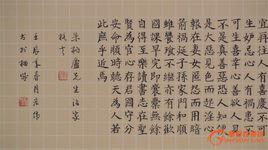 宜再往人有喜慶不可
生妒忌心人有禍患不
可生喜幸心善欲人見
不是真善惡恐人知便
是大惡見色而起淫心
報在妻女匿怨而用暗
箭禍延子孫家門和順
雖饔飧不繼亦有餘歡
國課早完即囊橐無餘
自得至樂讀書志在聖
賢為官心存君國守分
安命順時聽天為人若
此庶乎近焉
朱柏廬先生治家
格言